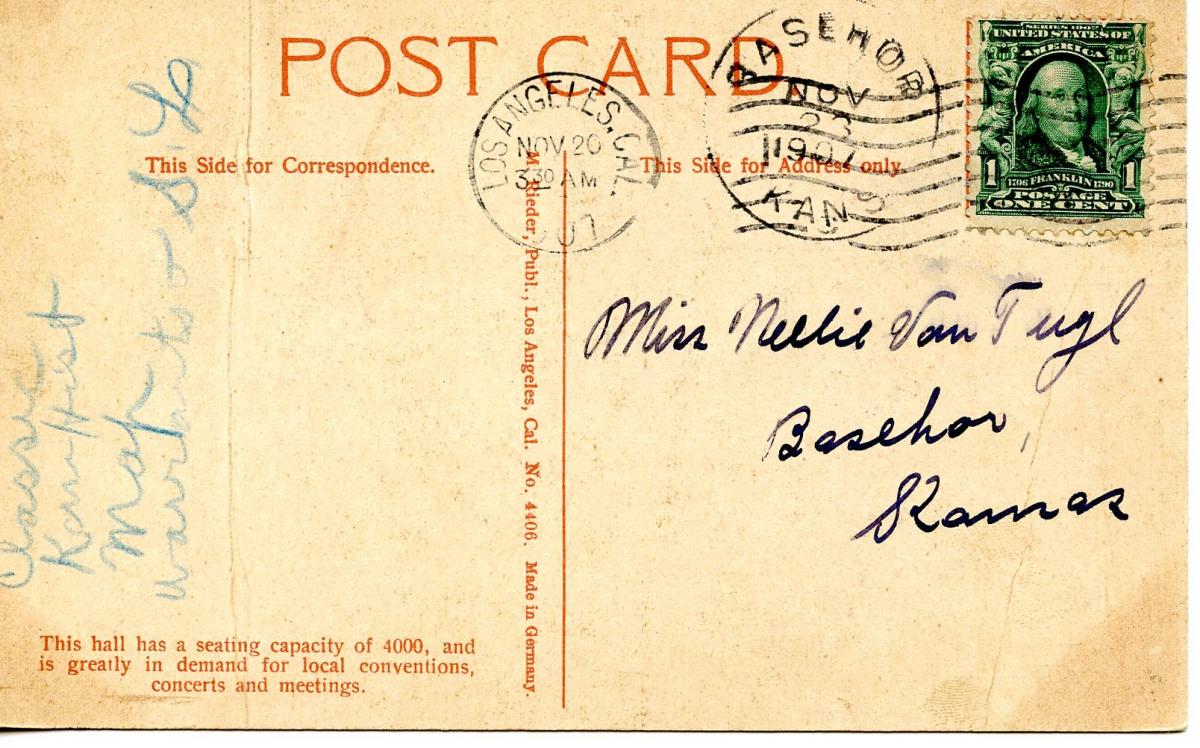 POST CARD.
This Side for Correspondence.
This Side for Address only.
LOS ANGELES, CAL.
NOV 20
3 30 AM
BASEHOR
NOV
23
1907
KANS
SERIES 1902
UNITED STATES OF
AMERICA
1 1
1706 FRANKLIN 1790
POSTAGE
ONE CENT
Miss Nellie Van Tugl
Basehor,
Kansas
M. Rieder, Publ., Los Angeles, Cal. No. 4406. Made in Germany.
May
This hall has a seating capacity of 4000, and
is greatly in demand for local conventions,
concerts and meetings.